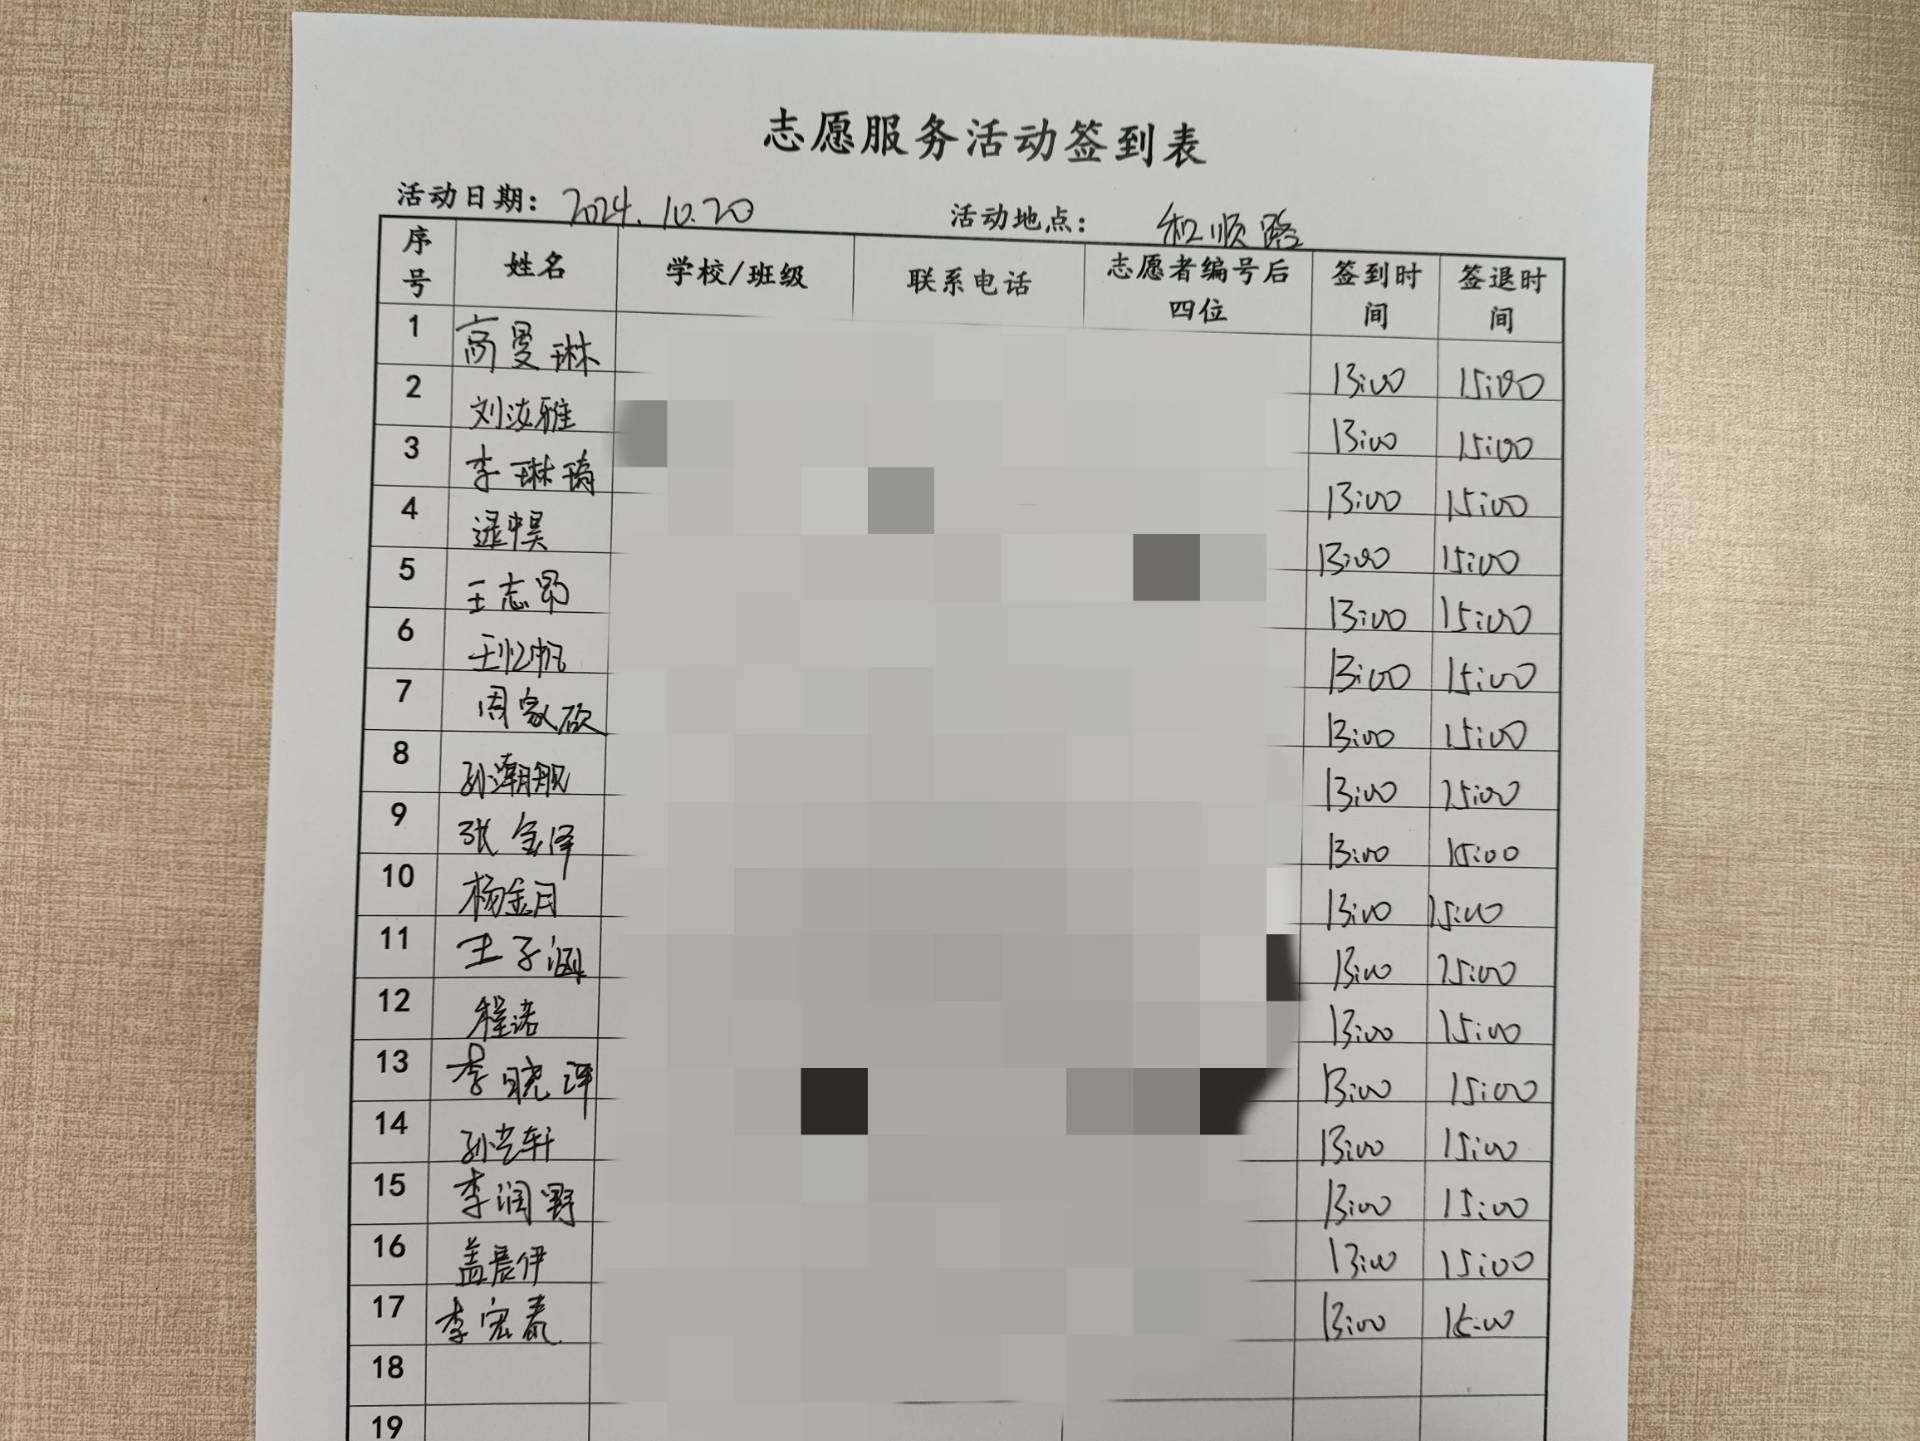 志愿服务活动签到表
活动日期: 2024.10.20 活动地点: 和顺路
序号 姓名 学校/班级 联系电话 志愿者编号后四位 签到时间 签退时间
1 高曼琳 13:00 15:00
2 刘汝雅 13:00 15:00
3 李琳琦 13:00 15:00
4 13:00 15:00
5 王志昂 13:00 15:00
6 王忆帆 13:00 15:00
7 周家砍 13:00 15:00
8 孙潮舰 13:00 15:00
9 张金泽 13:00 15:00
10 杨金月 13:00 15:00
11 王子涵 13:00 15:00
12 程诺 13:00 15:00
13 李晓萍 13:00 15:00
14 孙艺轩 13:00 15:00
15 李润野 13:00 15:00
16 盖晨伊 13:00 15:00
17 李宏泰 13:00 15:00
18
19